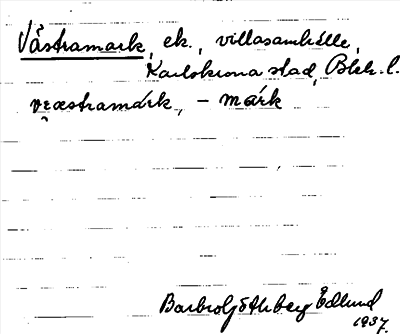 Västramark, ek., villasamhälle,
Karlskrona stad, Blek. l.
væstramárk, – márk
Barbro Götherberg Edlund
1937.